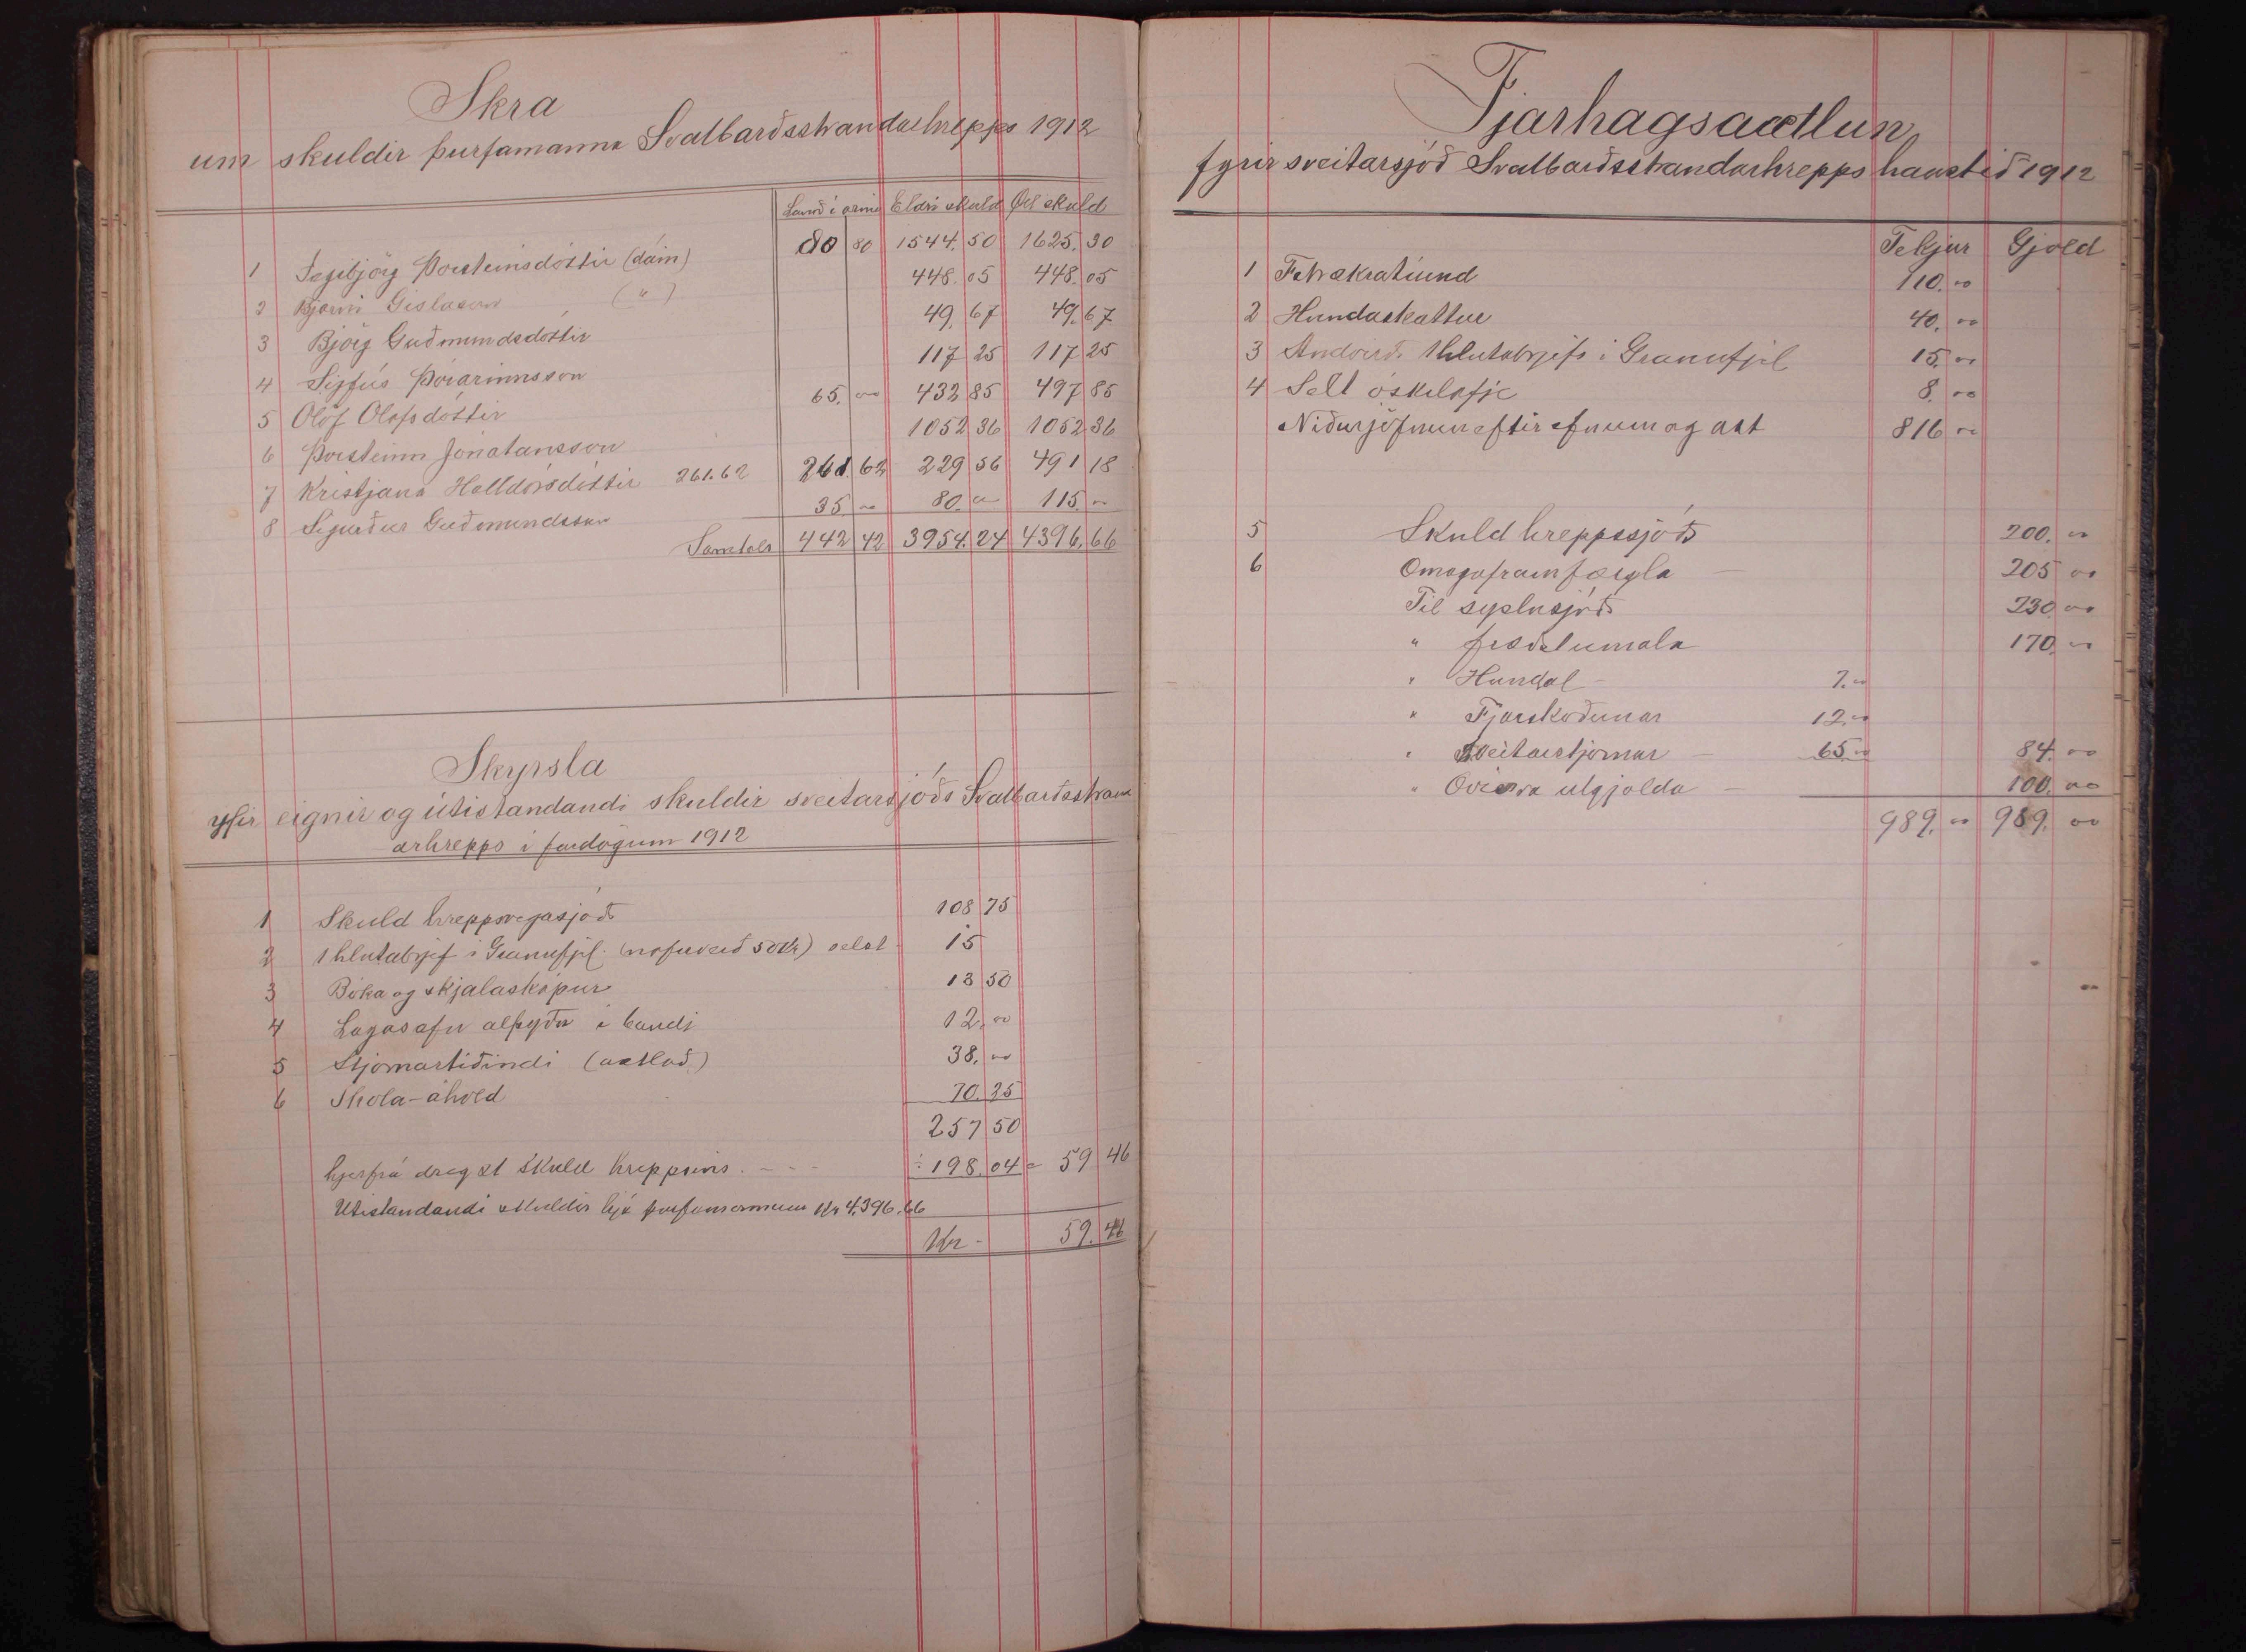 Skra
um skuldir þurfamanna Svalbarðsstrandarhrepps 1912
Eldri skuld Öll skuld
1 Ingibjörg Þorsteinsdóttir (dáin) 80 80 1544. 50 1625. 30
2 Bjarni Gislason ( " ) 448. 05 448. 05
3 Björg Guðmundsdóttir 49. 67 49. 67
4 Sigfús Þórarinnsson 117 25 117 25
5 Ólöf Olafsdóttir 65. 00 432 85 497 85
6 Þorsteinn Jónatansson 1052 36 1052 36
7 Kristjana Halldórsdóttir 261.62 261. 62 229 56 491 18
8 Sigurður Guðmundsson 35. 00 80. 00 115. 00
Samtals 442 42 3954. 24 4396. 66
Skyrsla
yfir eignir og útistandandi skuldir sveitarsjóðs Svalbarðsstrand
arhrepps i fardögum 1912
1 Skuld hreppsvegasjóðs 108 75
2 1 hlutabrjef i Granufjel. (nafnverð 50 Kr) selst 15
3 Bóka og skjalaskápur 13 50
4 Lagasafn alþyðu i bandi 12. 00
5 Stjornartiðindi (aætlað) 38. 00
6 Skola-áhöld 70. 25
257 50
hjerfrá dregst skuld hreppsins . - - - ÷ 198. 04 = 59 46
Utistandandi skuldir hjá þurfamönnum Kr 4,396.66
Kr - 59. 46
Fjarhagsaætlun
fyrir sveitarsjóð Svalbarðsstrandarhrepps haustið 1912
Tekjur Gjöld
1 Fatækratiund 110. 00
2 Hundaskattur 40. 00
3 Andvirði 1 hlutabrjefs i Granufjel 15. 00
4 Selt óskilafje 8. 00
Niðurjöfnun eftir efnum og ast 816 00
5 Skuld hreppssjóðs 200. 00
6 Omagaframfærsla 205 00
Til syslusjóðs 230. 00
" fræðslumala 170. 00
" Hundal 7. 00
" Fjarskoðunar 12. 00
" Sveitarstjornar 65. 00 84. 00
" Óvissra utgjalda 100. 00
989. 00 989. 00